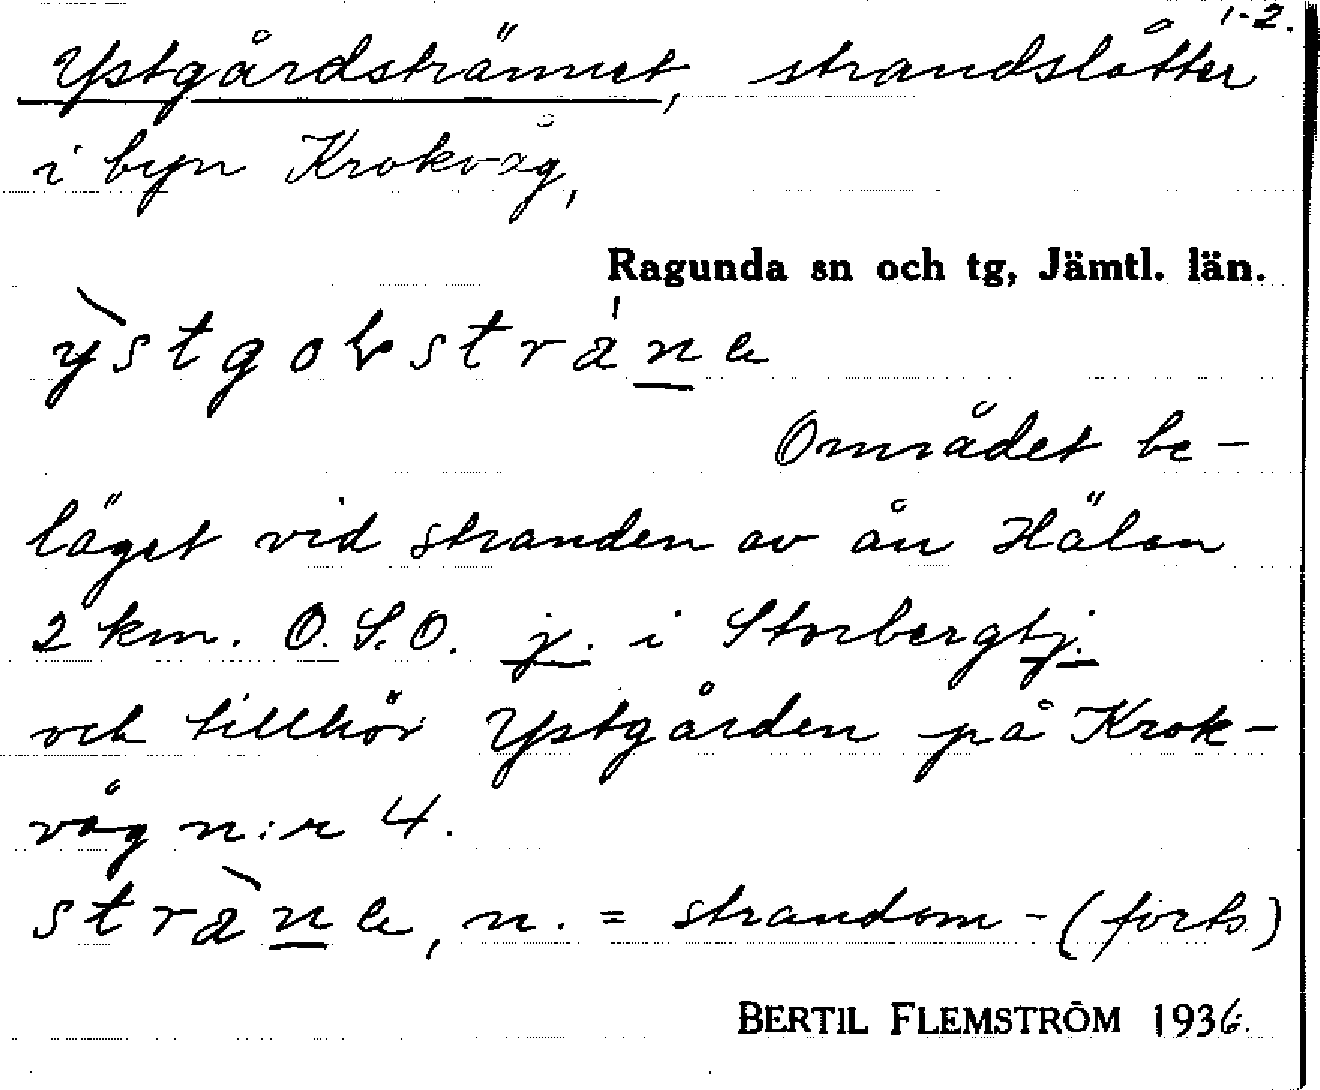 1-2.
Ystgårdstrännet, strandslåtter
i byn Krokvåg,
Ragunda sn och tg, Jämtl. län.
Området be-
läget vid stranden av ån Hälan
2 km. O.S.O. j. i Storbergtj.
och tillhör Ystgården på Krok-
våg n:r 4.
n. = strandom- (forts)
BERTIL FLEMSTRÖM 1936.